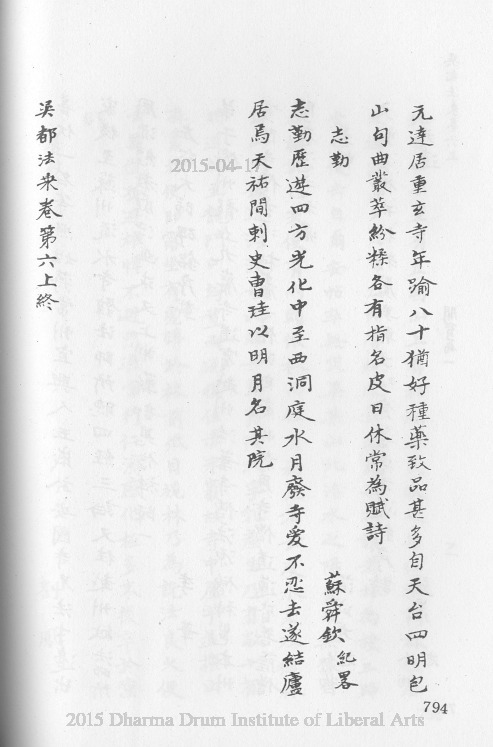 元達居重玄寺年踰八十猶好種藥致品甚多自天台四明包
山句曲叢萃紛糅各有指名皮日休常為賦詩
志勤
蘇舜欽紀畧
志勤歷遊四方光化中至西洞庭水月廢寺愛不忍去遂結廬
居焉天祐間刺史曹珪以明月名其院
吳都法乘卷第六上終
794
2015-04-17
2015 Dharma Drum Institute of Liberal Arts